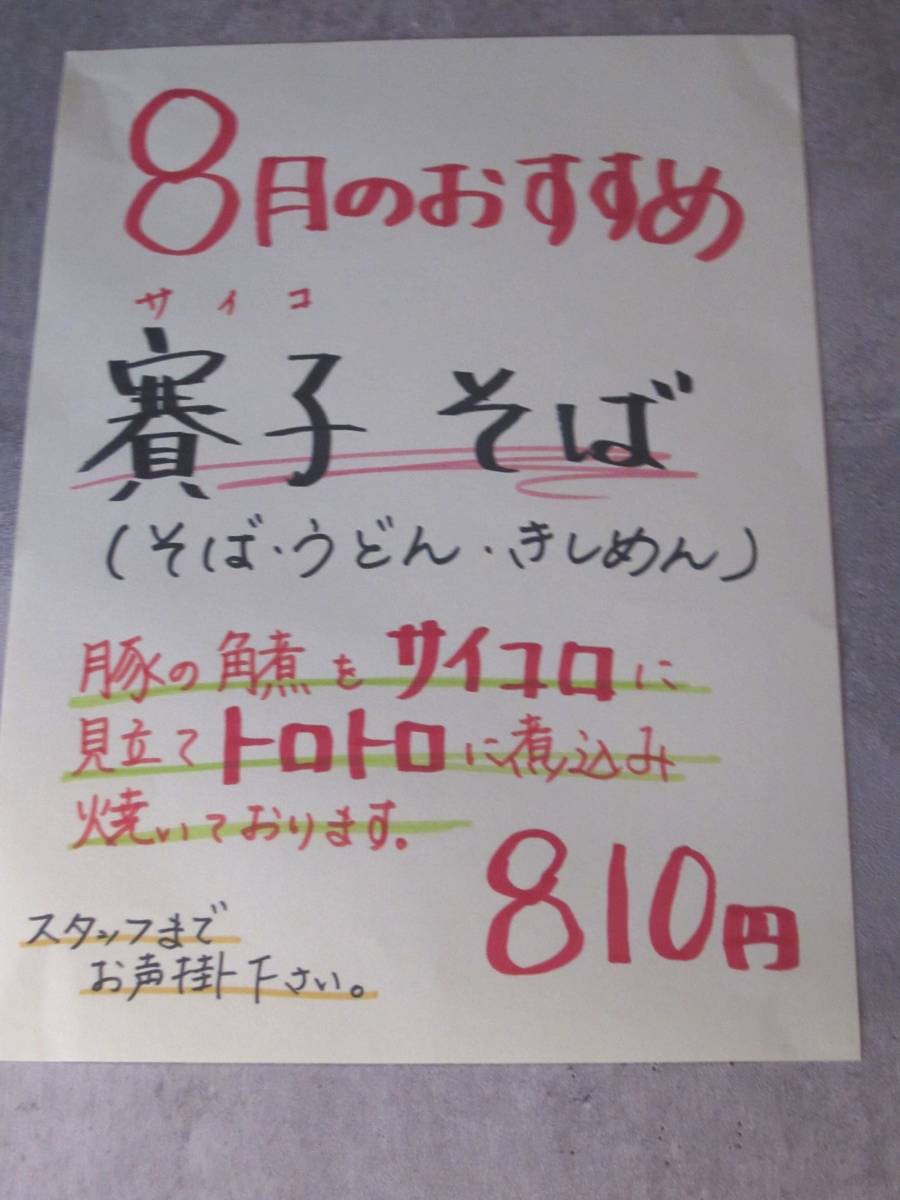 8月のおすすめ
サイコ
賽子 そば
(そば・うどん・きしめん)
豚の角煮をサイコロに
見立てトロトロに煮込み
焼いております。
810円
スタッフまで
お声掛下さい。